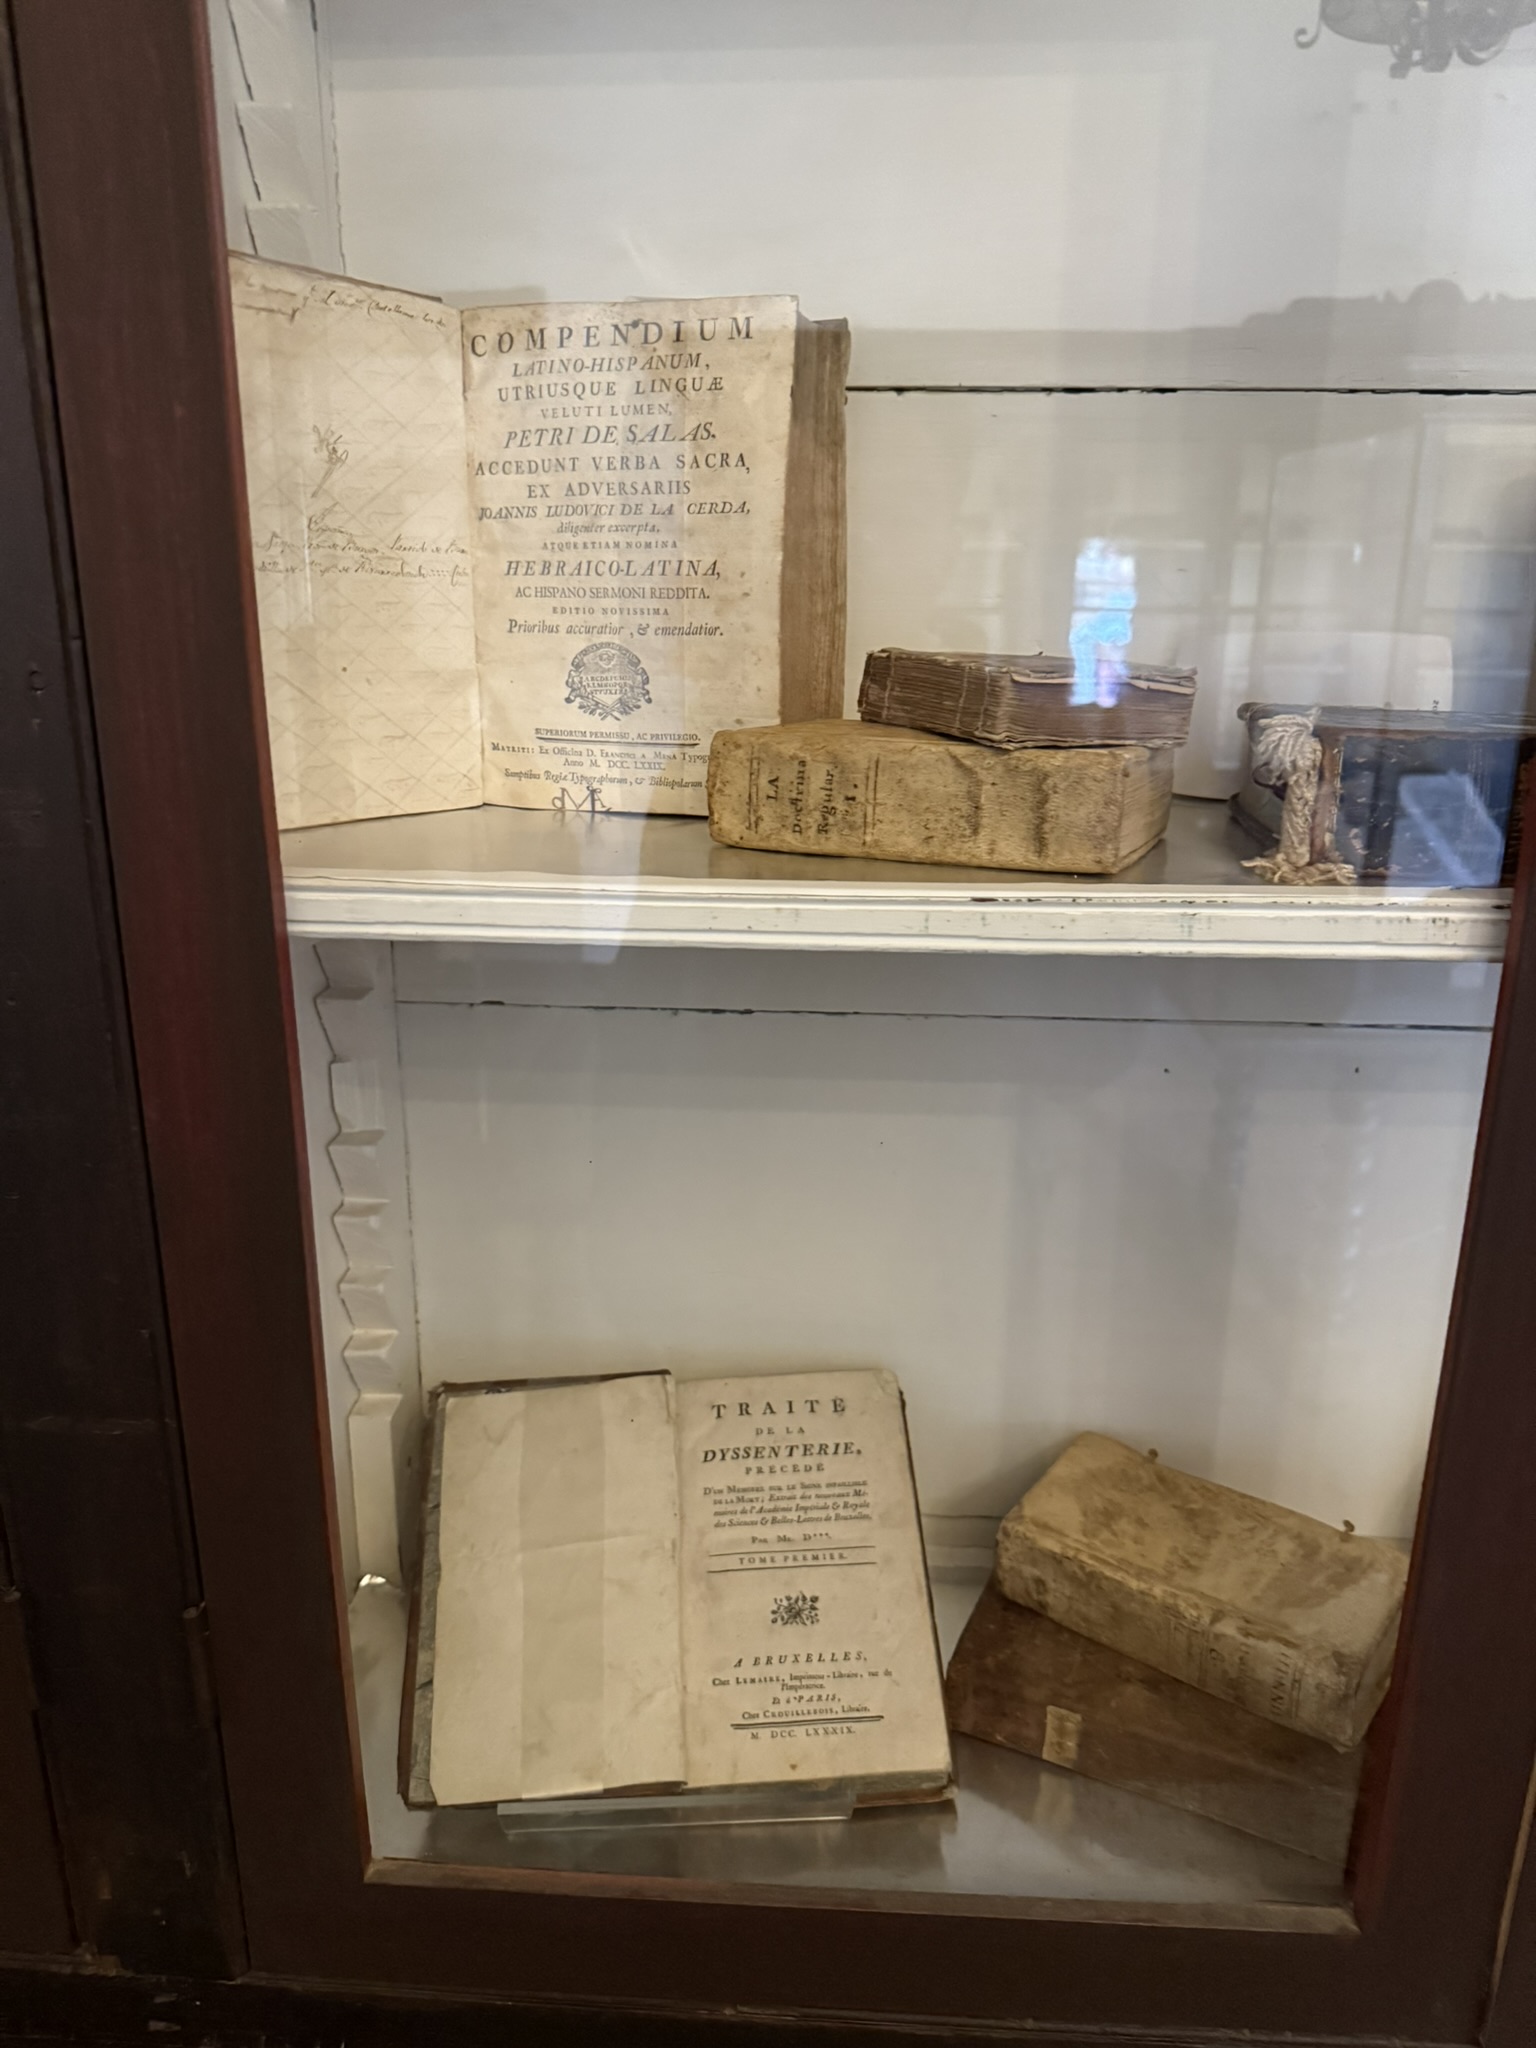 COMPENDIUM
LATINO-HISPANUM,
UTRIUSQUE LINGUÆ
VELUTI LUMEN,
PETRI DE SALAS.
ACCEDUNT VERBA SACRA,
EX ADVERSARIIS
JOANNIS LUDOVICI DE LA CERDA,
diligenter excerpta,
ATQUE ETIAM NOMINA
HEBRAICO-LATINA,
AC HISPANO SERMONI REDDITA.
EDITIO NOVISSIMA
Prioribus accuratior, & emendatior.
SUPERIORUM PERMISSU, AC PRIVILEGIO.
MATRITI: Ex Officina D.
Anno M. DCC. LXXIX.
Sumptibus Regiæ Typographorum, & Bibliopolarum
LA
Doctrina
Regular.
TRAITÉ
DE LA
DYSSENTERIE,
PRÉCÉDÉ
D'UN MEMOIRE SUR LE SIGNE INFAILLIBLE
DE LA MORT; Extrait des nouveaux Mé-
moires de l'Académie Impériale & Royale
des Sciences & Belles-Lettres de Bruxelles.
Par Mr. D***.
TOME PREMIER.
A BRUXELLES,
Chez LEMAIRE, Imprimeur-Libraire, rue de
l'Impératrice.
Et à PARIS,
Chez CROUILLEBOIS, Libraire.
M. DCC. LXXXIX.